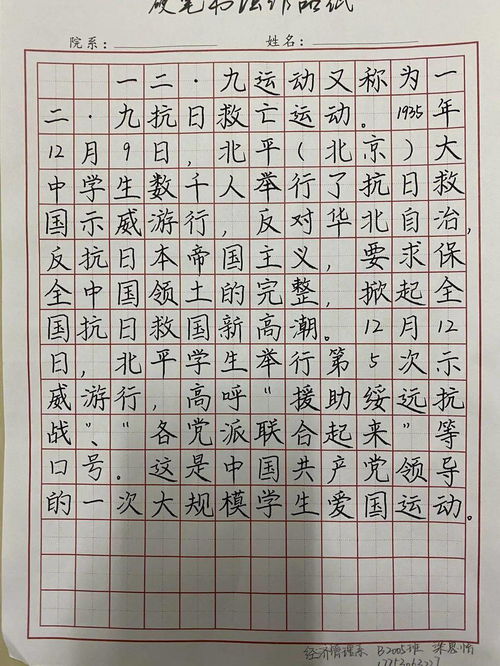 硬笔书法作品纸
院系： 姓名：
一二·九运动又称为一
二·九抗日救亡运动。1935年
12月9日，北平（北京）大
中学生数千人举行了抗日救
国示威游行，反对华北自治，
反抗日本帝国主义，要求保
全中国领土的完整，掀起全
国抗日救国新高潮。12月12
日，北平学生举行第5次示
威游行，高呼“援助绥远抗
战”、“各党派联合起来”等
口号。这是中国共产党领导
的一次大规模学生爱国运动。
经济管理系 B2005班